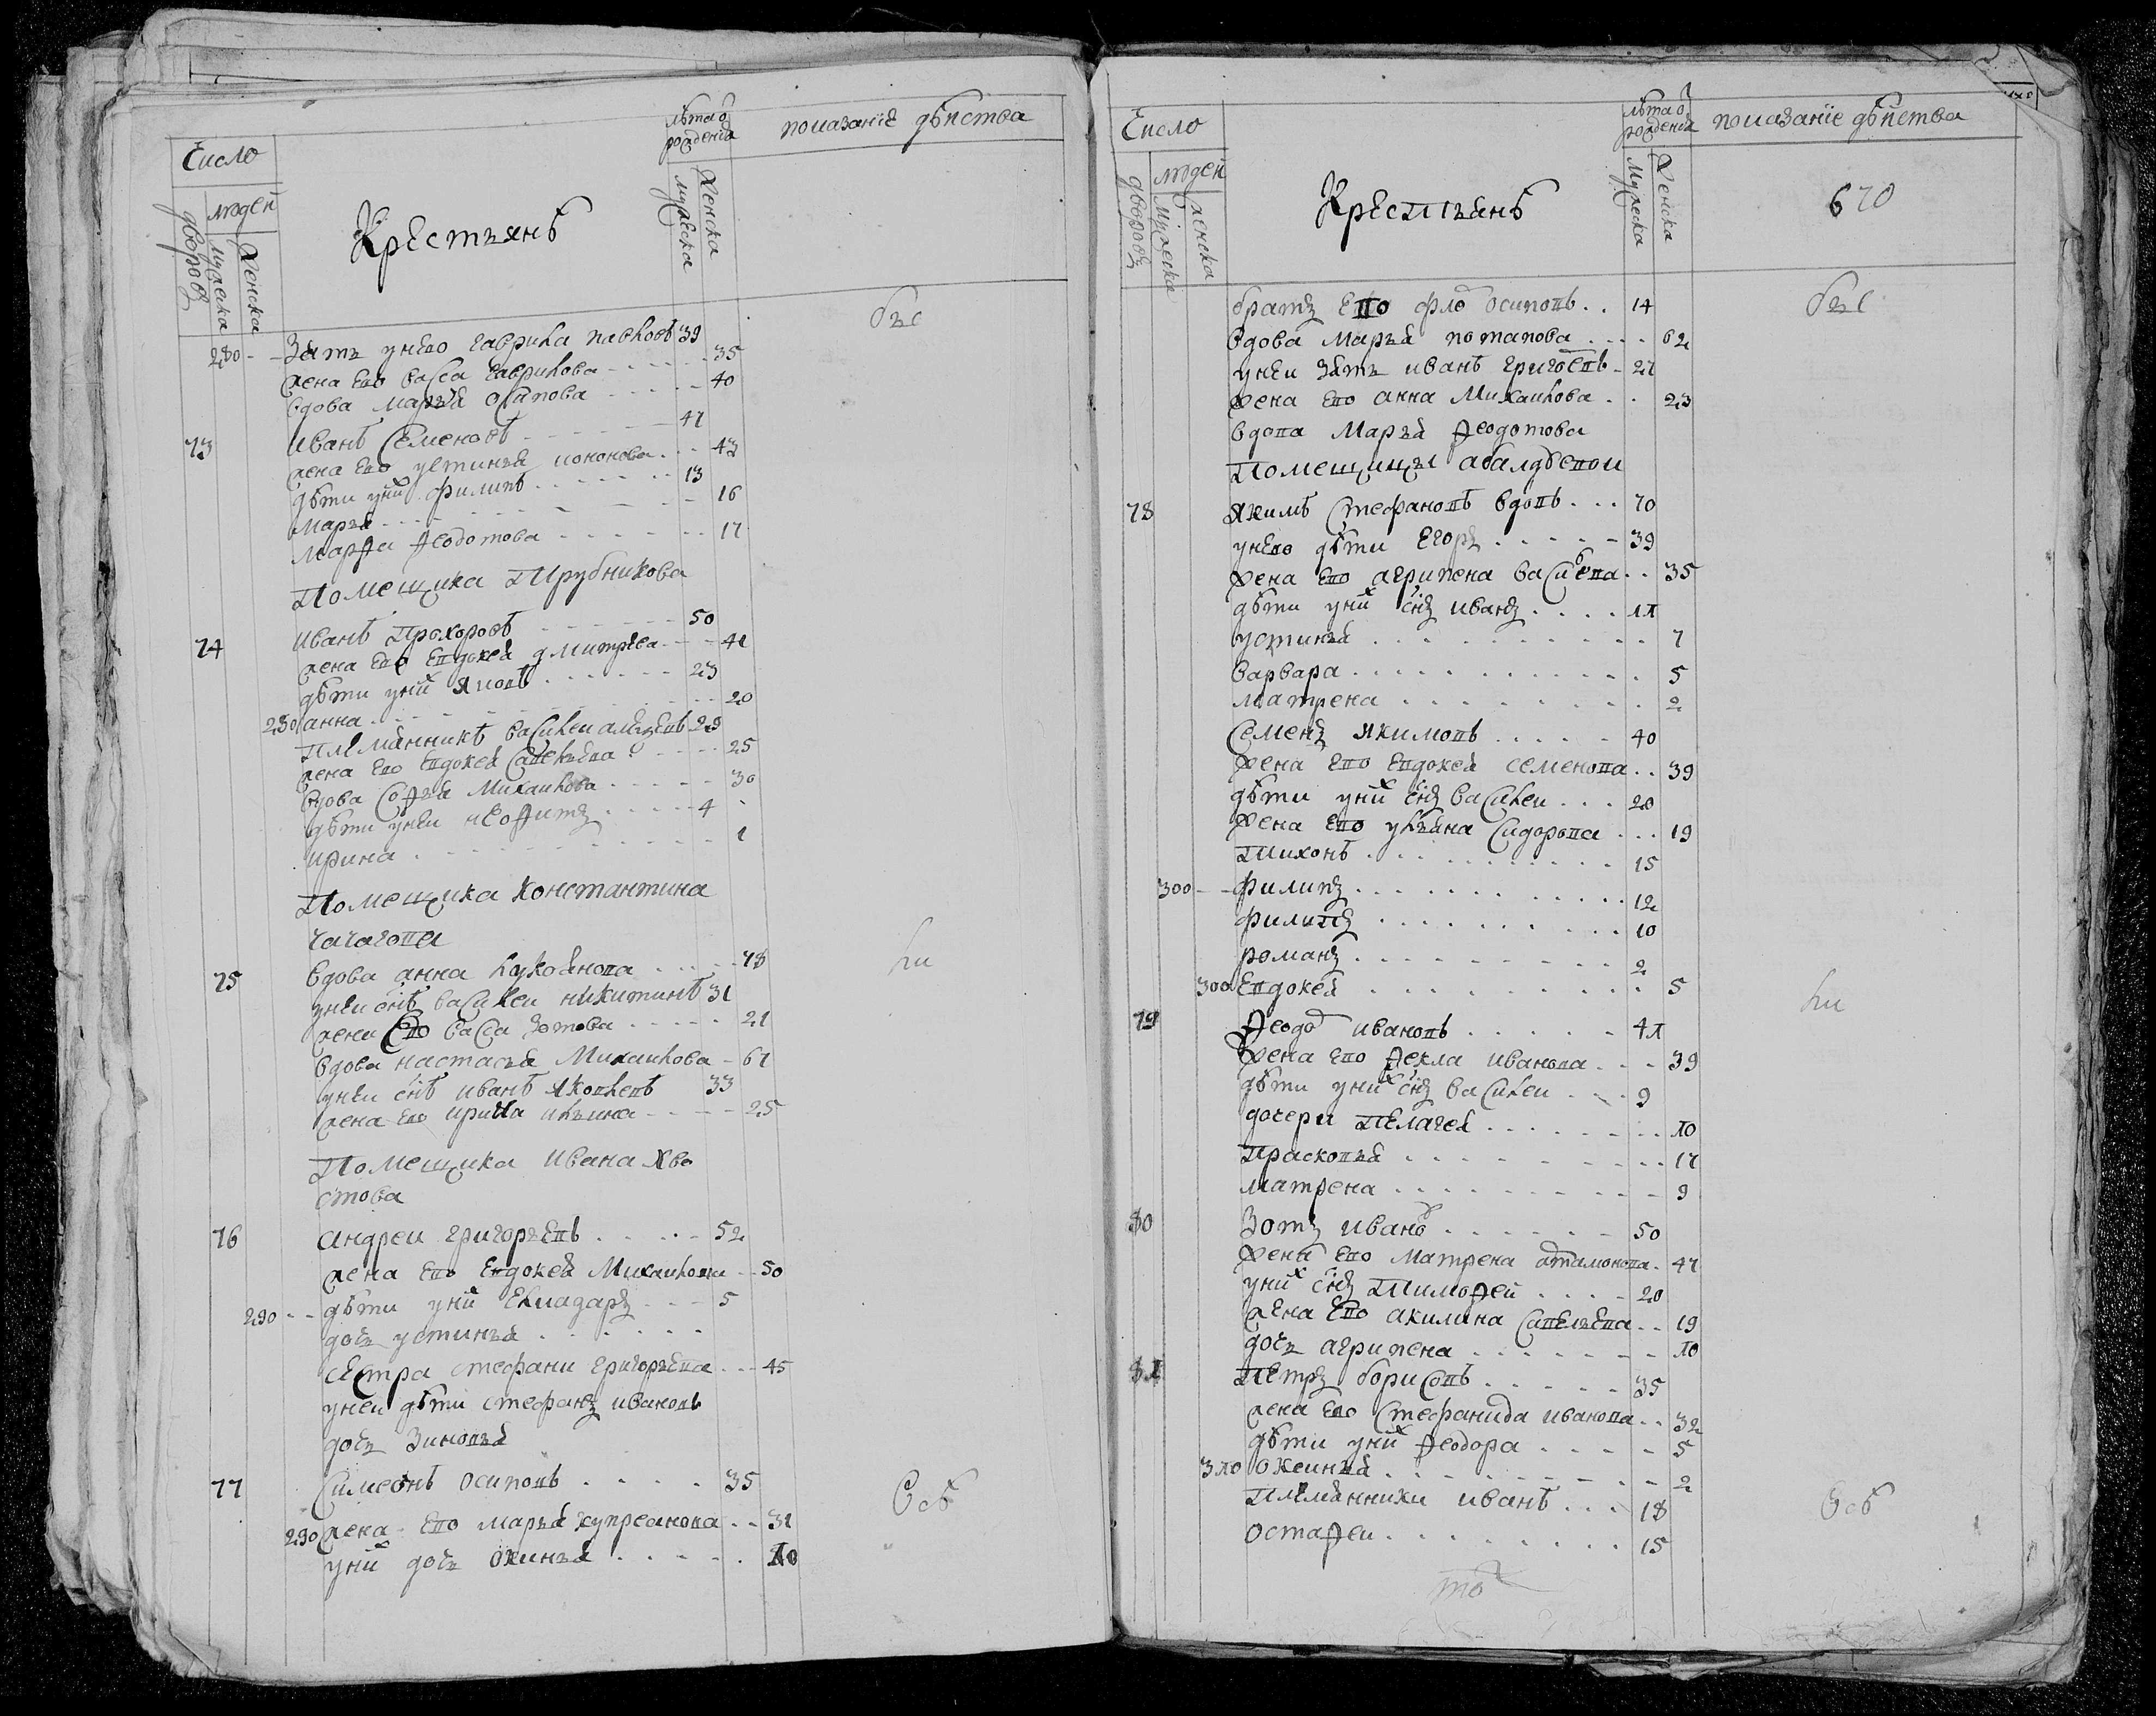 Число
лѣта о рожденїа
показанїе дѣиства
людей
дворовъ
мужеска
женска
Крестьянъ
мужеска
женска
280 - - Зать унего гаврила павловъ 39
жена его васса гаврилова - - - - 35
вдова марья осипова - - - - 40
73 иванъ семеновъ - - - - 47
жена его устинья кононова - - 43
дѣти уних филипъ - - - - 13
марья - - - - 16
марѳа ѳеодотова - - - - 17
Помещика Трубникова
74 иванъ прохоровъ - - - - 50
жена его евдокея дмитрѣва - - - 41
дѣти уних яковъ - - - - 23
280 анна - - - - 20
племянникъ василеи алѣѯѣевъ 29
жена его евдокея савельева - - - 25
вдова соѳья михаилова - - - - 30
дѣти унеи неоѳитъ - - - - 4
ирина - - - - 1
Помещика Константина
чагагова
75 вдова анна лукоянова - - - - 78
унеи снъ василеи никитинъ 31
жена его васса зотова - - - - 21
вдова настасья Михаилова - 61
унеи снъ иванъ яковлевъ 33
жена его ирина ильина - - - - 25
Помещика ивана хво
стова
76 андреи григорьевъ - - - - 52
жена его евдокея Михаилова - - 50
290 - - дѣти уних елиазаръ - - - 5
дочь устинья - - - -
сестра стефани григорьева - - - 45
унеи дѣти стефанъ ивановъ
дочь зиновья
77 Симеонъ осиповъ - - - - 35
290 жена его марья купреанова - - 31
уних дочь оксинья - - - - 10
бы
ли
Всѣ
Число
лѣта о рожденїа
показанїе дѣиства
людей
дворовъ
мужеска
женска
Крестьянъ
мужеска
женска
670
братъ его флоръ осиповъ - - 14
вдова Марья потапова - - - - 62
унеи зять иванъ григоревъ - 27
жена его анна Михаилова - - 23
вдова Марья ѳеодотова
Помещицы абалдуевои
78 якимъ стефановъ вдовъ - - - 70
унего дѣти егоръ - - - - 39
жена его агрипена василева - - 35
дѣти уних снъ иванъ - - - - 11
устинья - - - - 7
варвара - - - - 5
матрена - - - - 2
семенъ якимовъ - - - - 40
жена его евдокея семенова - - 39
дѣти уних снъ василеи - - - 20
жена его ульяна сидорова - - - 19
Тихонъ - - - - 15
300 - - филипъ - - - - 12
филипъ - - - - 10
романъ - - - - 2
300 евдокея - - - - 5
79 ѳеодоръ ивановъ - - - - 41
жена его ѳекла иванова - - - 39
дѣти уних снъ василеи - - - 9
дочери пелагея - - - - 10
прасковья - - - - 17
матрена - - - - 9
80 Зотъ ивановъ - - - - 50
жена его матрена артамонова - 47
уних снъ Тимоѳеи - - - - 20
жена его акилина савельева - - 19
дочь агрипена - - - - 10
81 Петръ борисовъ - - - - 35
жена его стефанида иванова - - 32
дѣти уних ѳеодора - - - - 5
310 оксинья - - - - 2
племянники иванъ - - - 18
остаѳеи - - - - 15
бы
ли
Всѣ